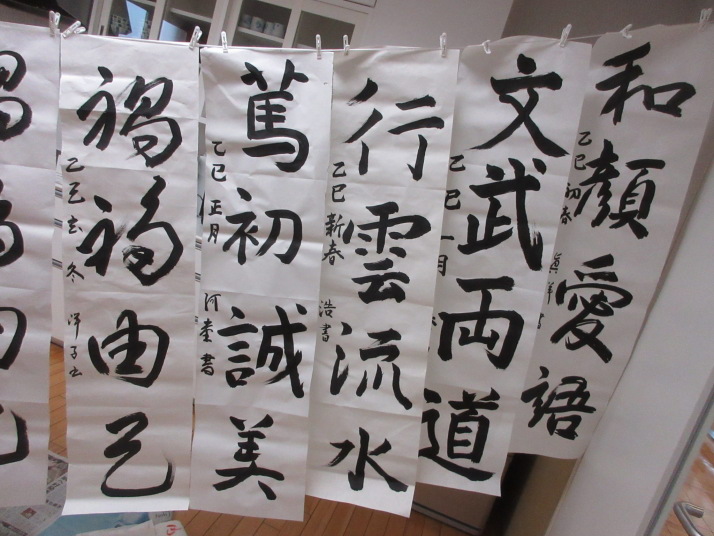 和顔愛語
乙巳 初春
文武両道
乙巳 一月
行雲流水
乙巳 新春 浩書
篤初誠美
乙巳 正月
禍福由己
乙巳 玄冬 洋子書